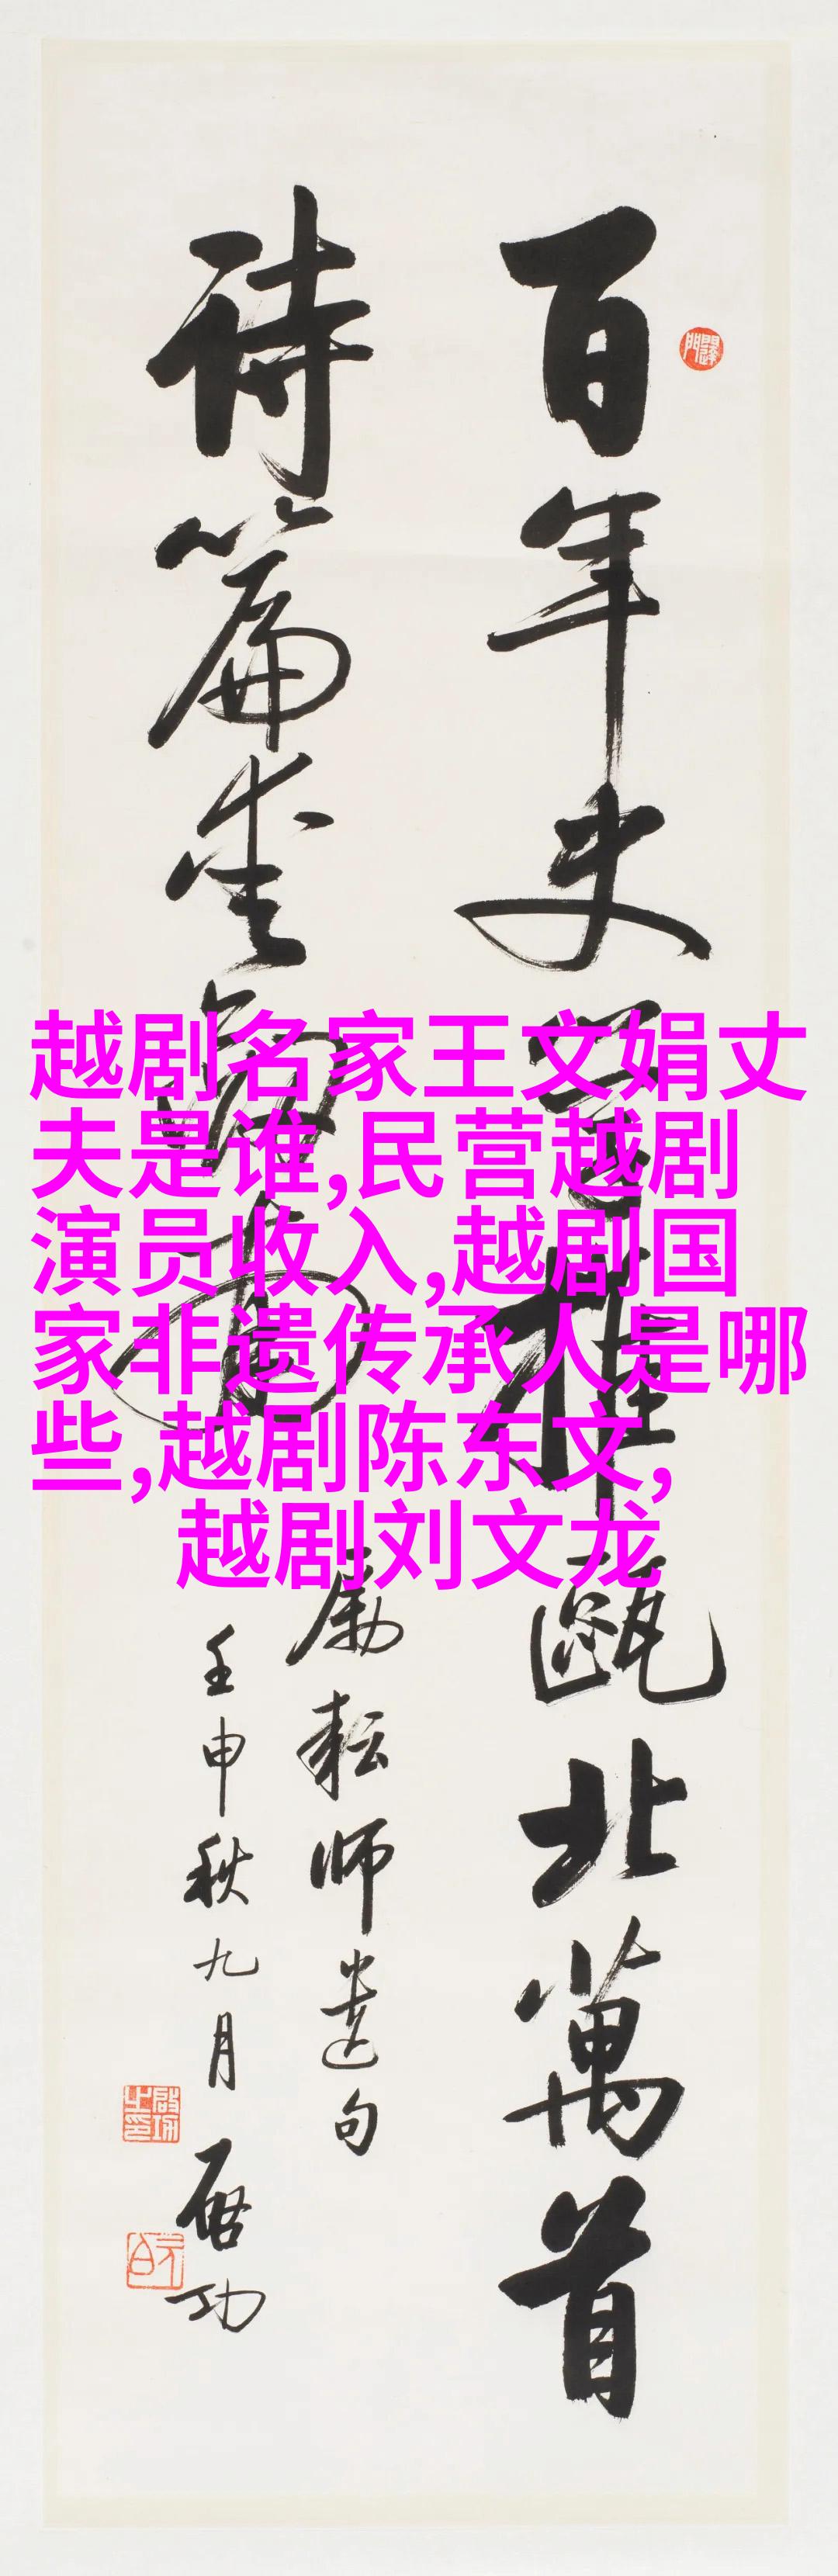 百年史學推甌北萬首
詩篇愛劍南
勵耘师遺句
壬申秋九月
啓功
越剧名家王文娟丈
夫是谁,民营越剧
演员收入,越剧国
家非遗传承人是哪
些,越剧陈东文,
越剧刘文龙